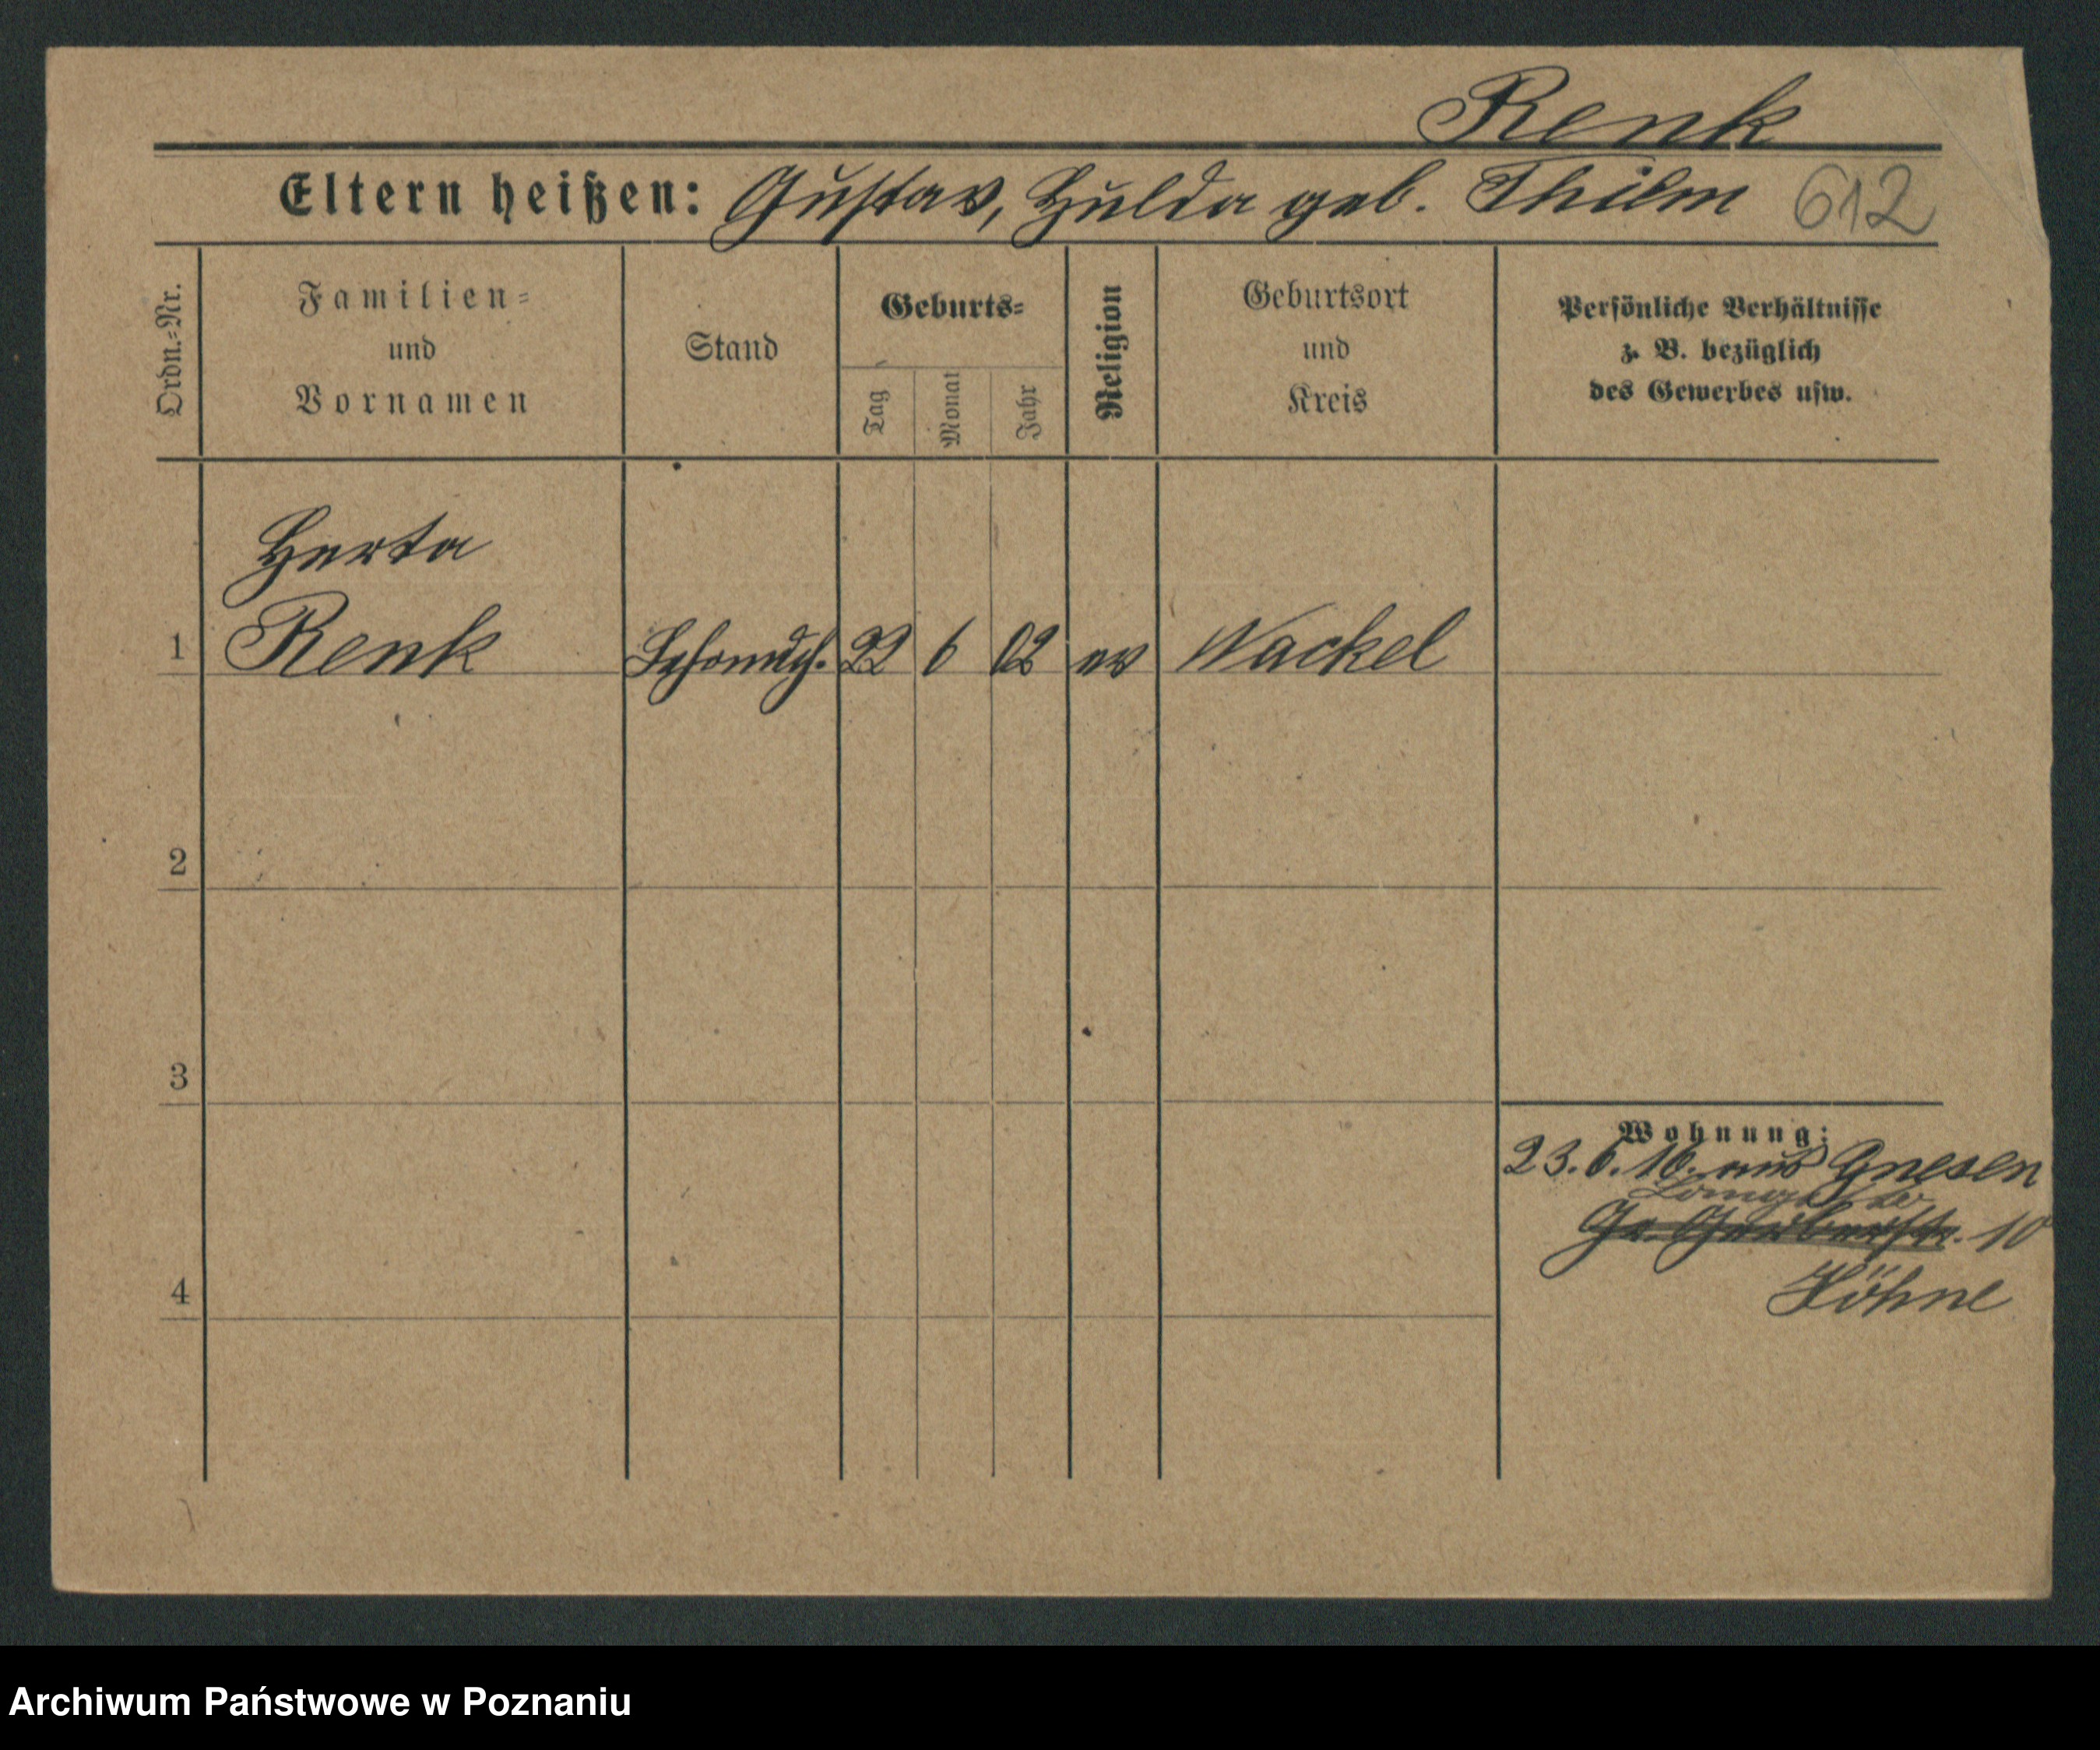 Renk
Eltern heißen: Gustav, Hulda geb. Thilm 612
Ordn.-Nr.
Familien-
und
Vornamen
Stand
Geburts-
Tag
Monat
Jahr
Religion
Geburtsort
und
Kreis
Persönliche Verhältnisse
z. B. bezüglich
des Gewerbes usw.
Herta
1 Renk 22 6 02 ev Wackel
2
3
4
Wohnung:
23. 6. 16. aus Gnesen
Gr. Gerberstr. 10
Höhne
Archiwum Państwowe w Poznaniu